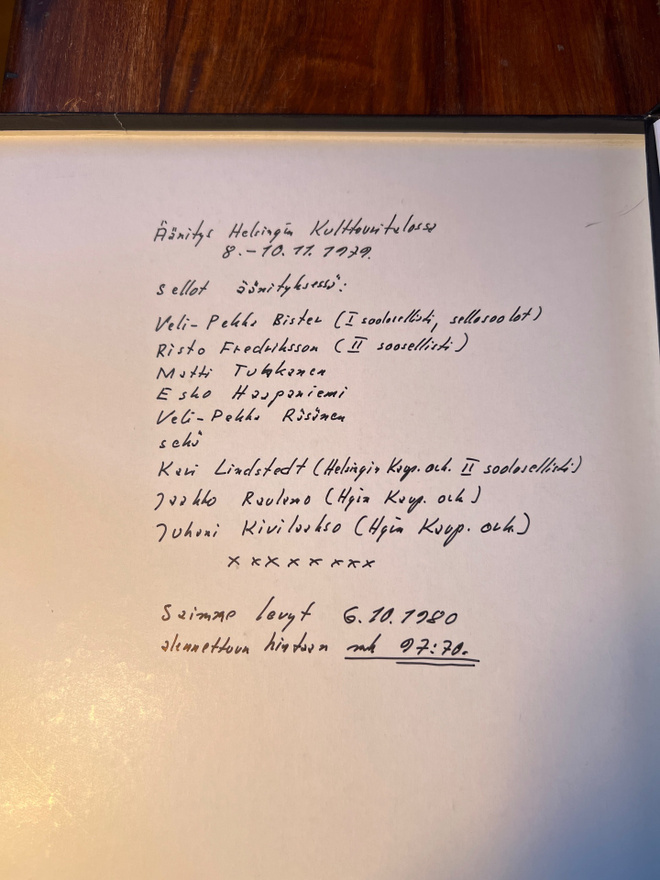 Äänitys Helsingin Kulttuuritalossa
8.-10.11.1979.
sellot äänityksessä:
Veli-Pekka Bister (I soolosellisti, sellosoolot)
Risto Fredriksson (II soosellisti)
Matti Tukkanen
Esko Haapaniemi
Veli-Pekka Räsänen
sekä
Kari Lindstedt (Helsingin Kaup. ork. II soolosellisti)
Jaakko Raulamo (Hgin Kaup. ork)
Juhani Kivilaakso (Hgin Kaup. ork.)
x x x x x x x x
Saimme levyt 6.10.1980
alennettuun hintaan mk 97:70.